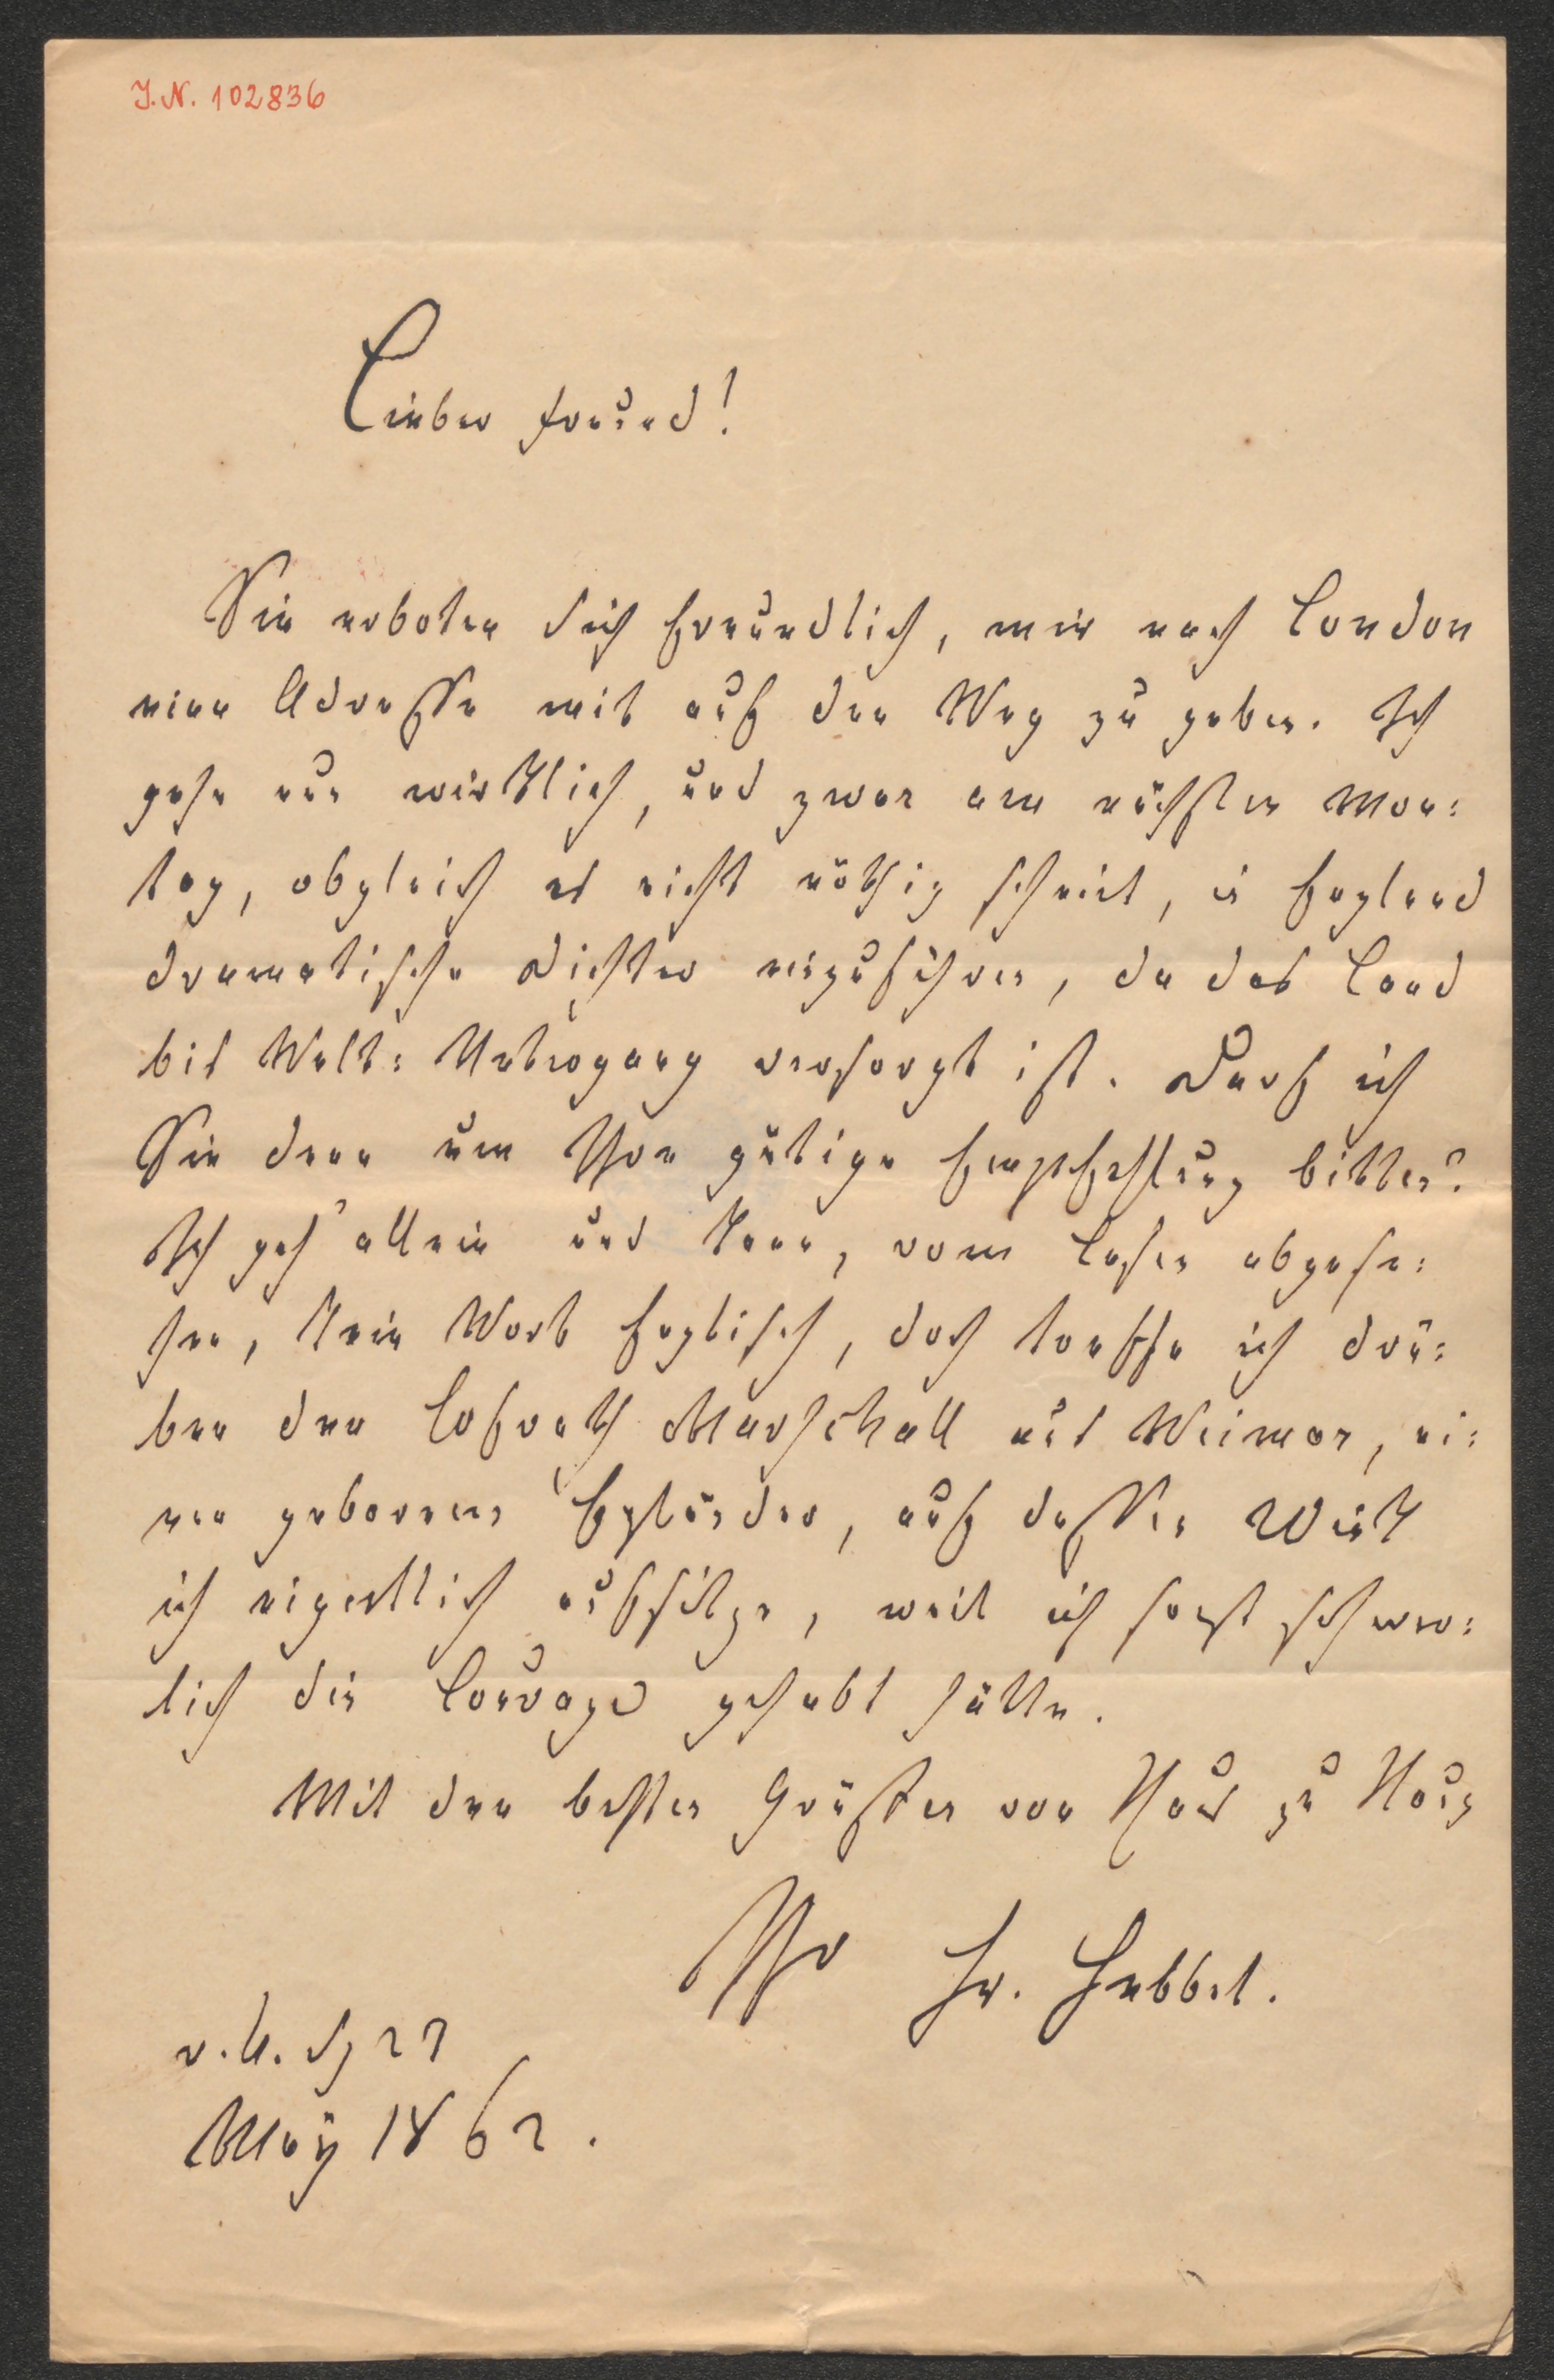 J.N. 102836
Lieber Freund!
Sie erboten sich freundlich, mir nach London
eine Adresse mit auf den Weg zu geben. Ich
gehe nun wirklich, und zwar am nächsten Mon=
tag, obgleich es nicht nöthig scheint, in England
dramatische Dichter einzuführen, da das Land
bis Welt=Untergang versorgt ist. Darf ich
Sie denn um Ihre gütige Empfehlung bitten?
Ich geh' allein und kann, vom Lesen abgese=
hen, kein Wort Englisch, doch treffe ich drü=
ben den Hofrath Marschall aus Weimar, ei=
nen geborenen Engländer, auf dessen Wink
ich eigentlich aufsitze, weil ich sonst schwer=
lich die Courage gehabt hätte.
Mit den besten Grüßen von Haus zu Haus
Ihr Fr. Hebbel.
v. H. d 27
May 1862.